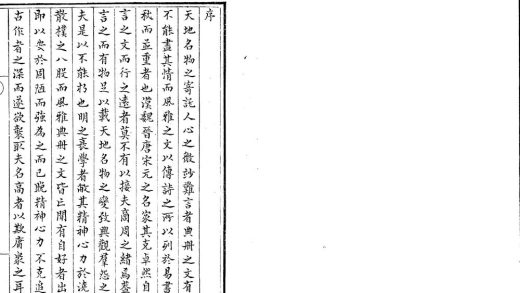 序
天地名物之寄託人心之微訬難言者典冊之文有
不能盡其情而風雅之文以傳詩之所以列於易書
秋而並重者也漢魏晉唐宋元之名家其克卓然自
言之文而行之遠者莫不有以接夫商周之緒焉蓋
言之而有物足以載天地名物之變致興觀羣怨之
夫是以不能朽也明之衰學者敝其精神心力於澆
散樸之八股而風雅典冊之文皆亡閒有自好者出
即以安於固陋而強為之而已脫精神心力不克追
古作者之深而遂欲襲取夫名高者以欺庸衆之耳